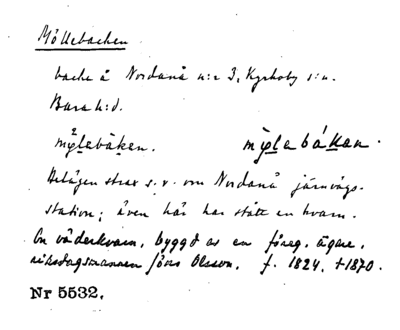 Möllebacken
backe å Nordanå n:r 3, Kyrkoby s:n.
Bara h:d.
mÿlebåken. mÿlebåkan.
Belägen strax s.v. om Nordanå järnvägs-
station; även här har stått en kvarn.
En väderkvarn, byggd av en föreg. ägare,
riksdagsmannen Jöns Olsson. f. 1824, †1870.
Nr 5532.